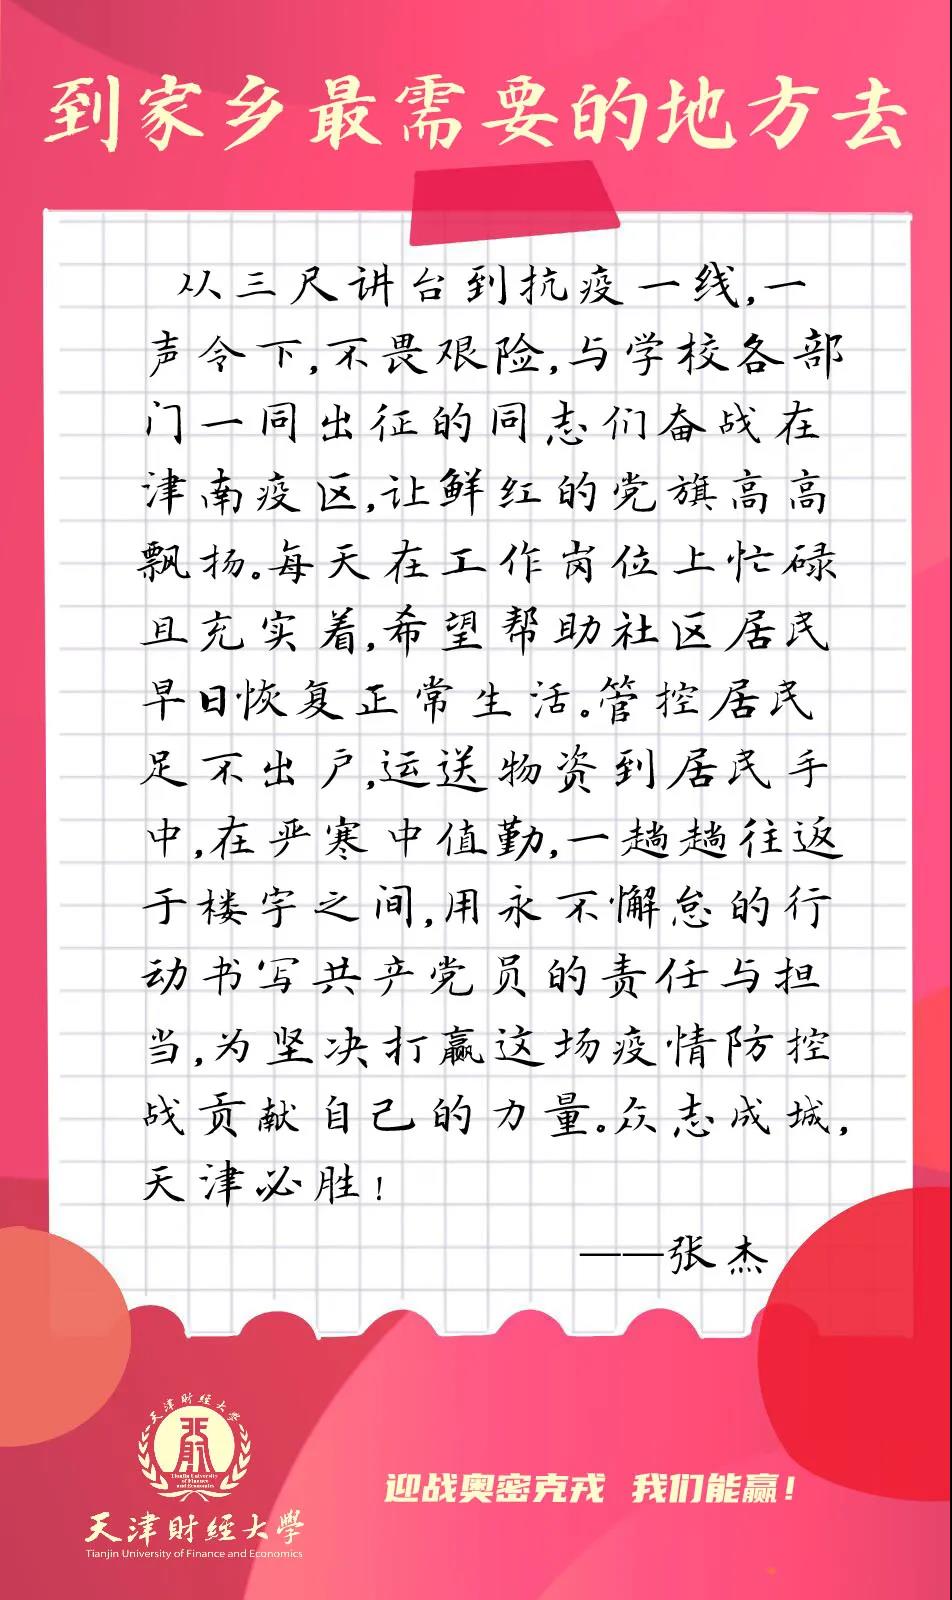 到家乡最需要的地方去
从三尺讲台到抗疫一线,一
声令下,不畏艰险,与学校各部
门一同出征的同志们奋战在
津南疫区,让鲜红的党旗高高
飘扬。每天在工作岗位上忙碌
且充实着,希望帮助社区居民
早日恢复正常生活。管控居民
足不出户,运送物资到居民手
中,在严寒中值勤,一趟趟往返
于楼宇之间,用永不懈怠的行
动书写共产党员的责任与担
当,为坚决打赢这场疫情防控
战贡献自己的力量。众志成城,
天津必胜!
——张杰
天津财经大学
Tianjin University
of Finance
and Economics
天津财经大學
Tianjin University of Finance and Economics
迎战奥密克戎 我们能赢!